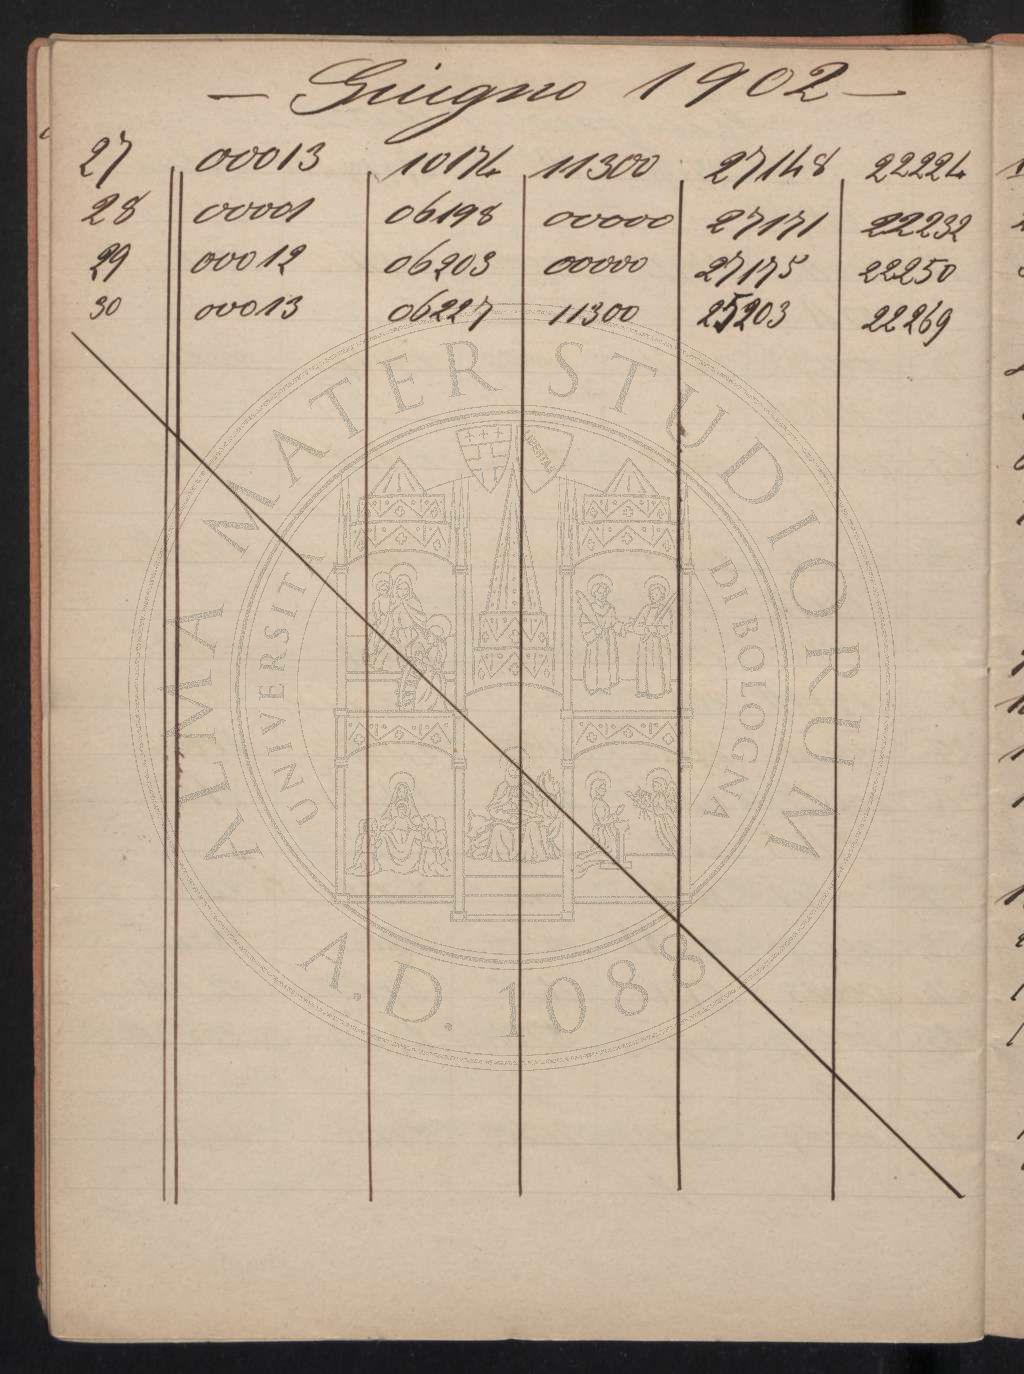 — Giugno 1902 —
27 00013 10174 11300 27148 22224
28 00001 06198 00000 27171 22232
29 00012 06203 00000 27175 22250
30 00013 06227 11300 25203 22269
ALMA MATER STUDIORUM
UNIVERSITÀ DI BOLOGNA
LIBERTAS
A.D. 1088